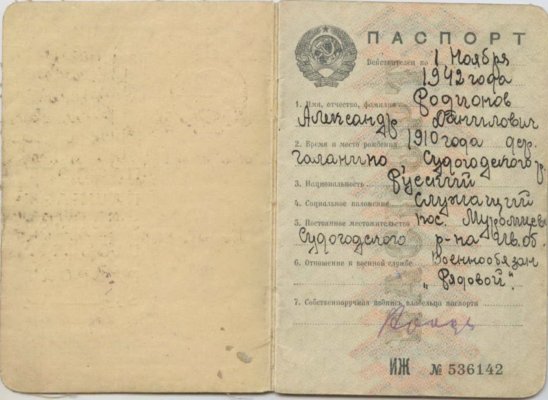 ПАСПОРТ
Действителен по 1 Ноября
1942 года
1. Имя, отчество, фамилия Родионов
Александр Данилович
2. Время и место рождения 1910 года дер.
Галанино Судогодского р.
3. Национальность Русский
4. Социальное положение Служащий
5. Постоянное местожительство пос. Муромцево
Судогодского р-на Ив. об.
6. Отношение к военной службе Военнообязан
„Рядовой".
7. Собственноручная подпись владельца паспорта
ИЖ № 536142